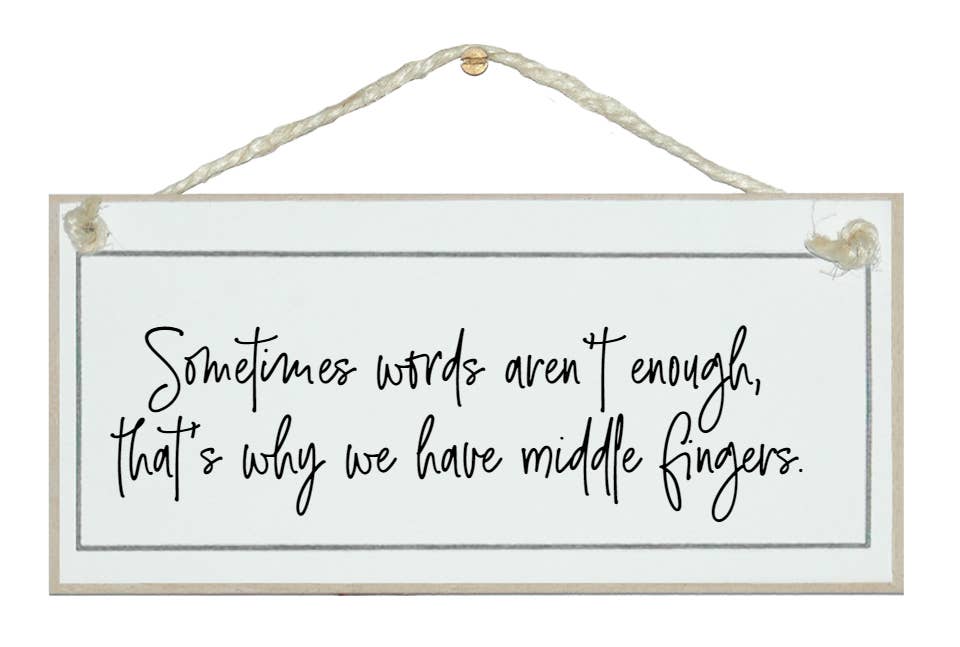 Sometimes words aren't enough,
that's why we have middle fingers.